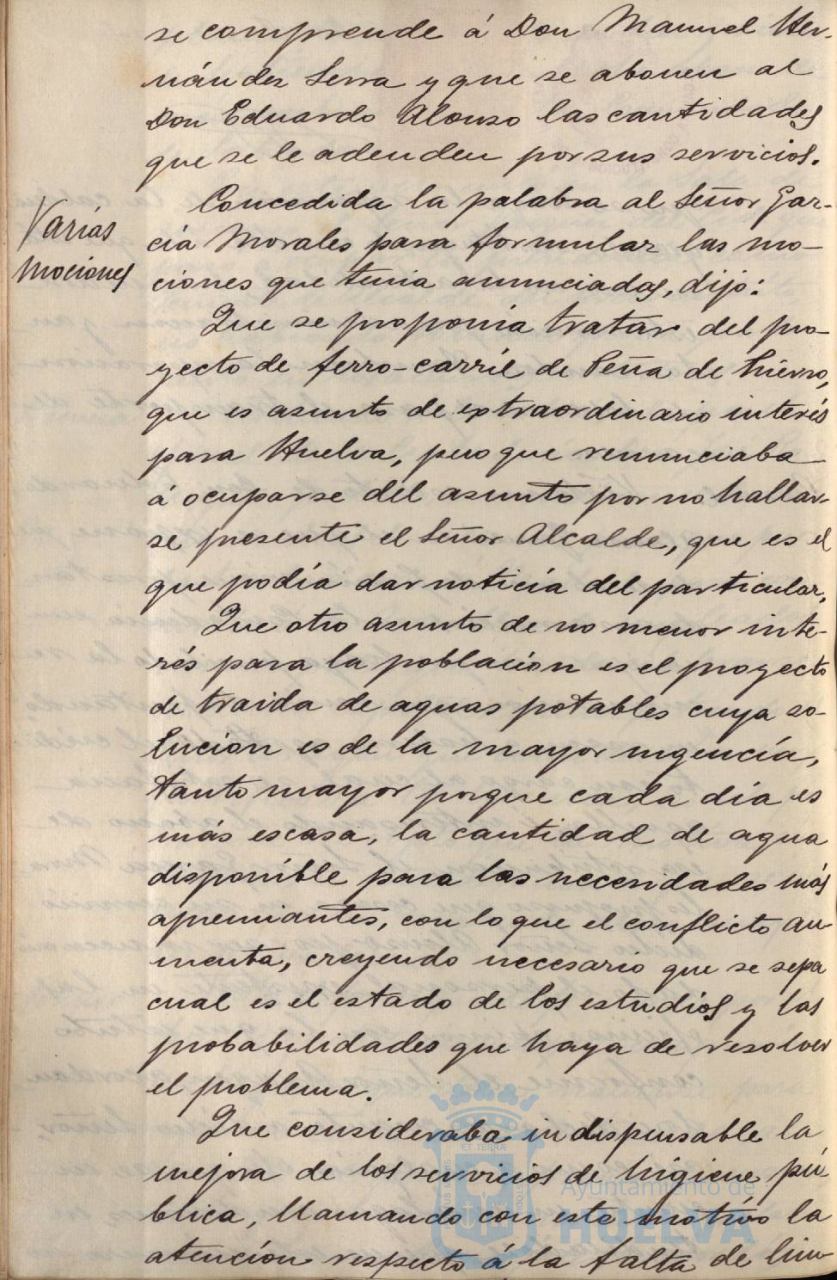 se comprende á Don Manuel Her-
nández Serra y que se abonen al
Don Eduardo Alonso las cantidades
que se le adenden por sus servicios.
Varias
mociones
Concedida la palabra al Señor Gar-
cía Morales para formular las mo-
ciones que tenia anunciadas, dijo:
Que se proponia tratar del pro-
yecto de ferro-carril de Peña de hierro,
que es asunto de extraordinario interés
para Huelva, pero que renunciaba
á ocuparse del asunto por no hallar-
se presente el Señor Alcalde, que es el
que podía dar noticia del particular.
Que otro asunto de no menor inte-
rés para la población es el proyecto
de traida de aguas potables cuya so-
lucion es de la mayor urgencía,
tanto mayor porque cada día es
más escasa, la cantidad de agua
disponible para las necesidades más
apremiantes, con lo que el conflicto au
menta, creyendo necesario que se sepa
cual es el estado de los estudios y las
probabilidades que haya de resolver
el problema.
Que consideraba indispensable la
mejora de los servicios de higiene pú
blica, llamando con este motivo la
atención respecto á la falta de lim
Ayuntamiento de
HUELVA